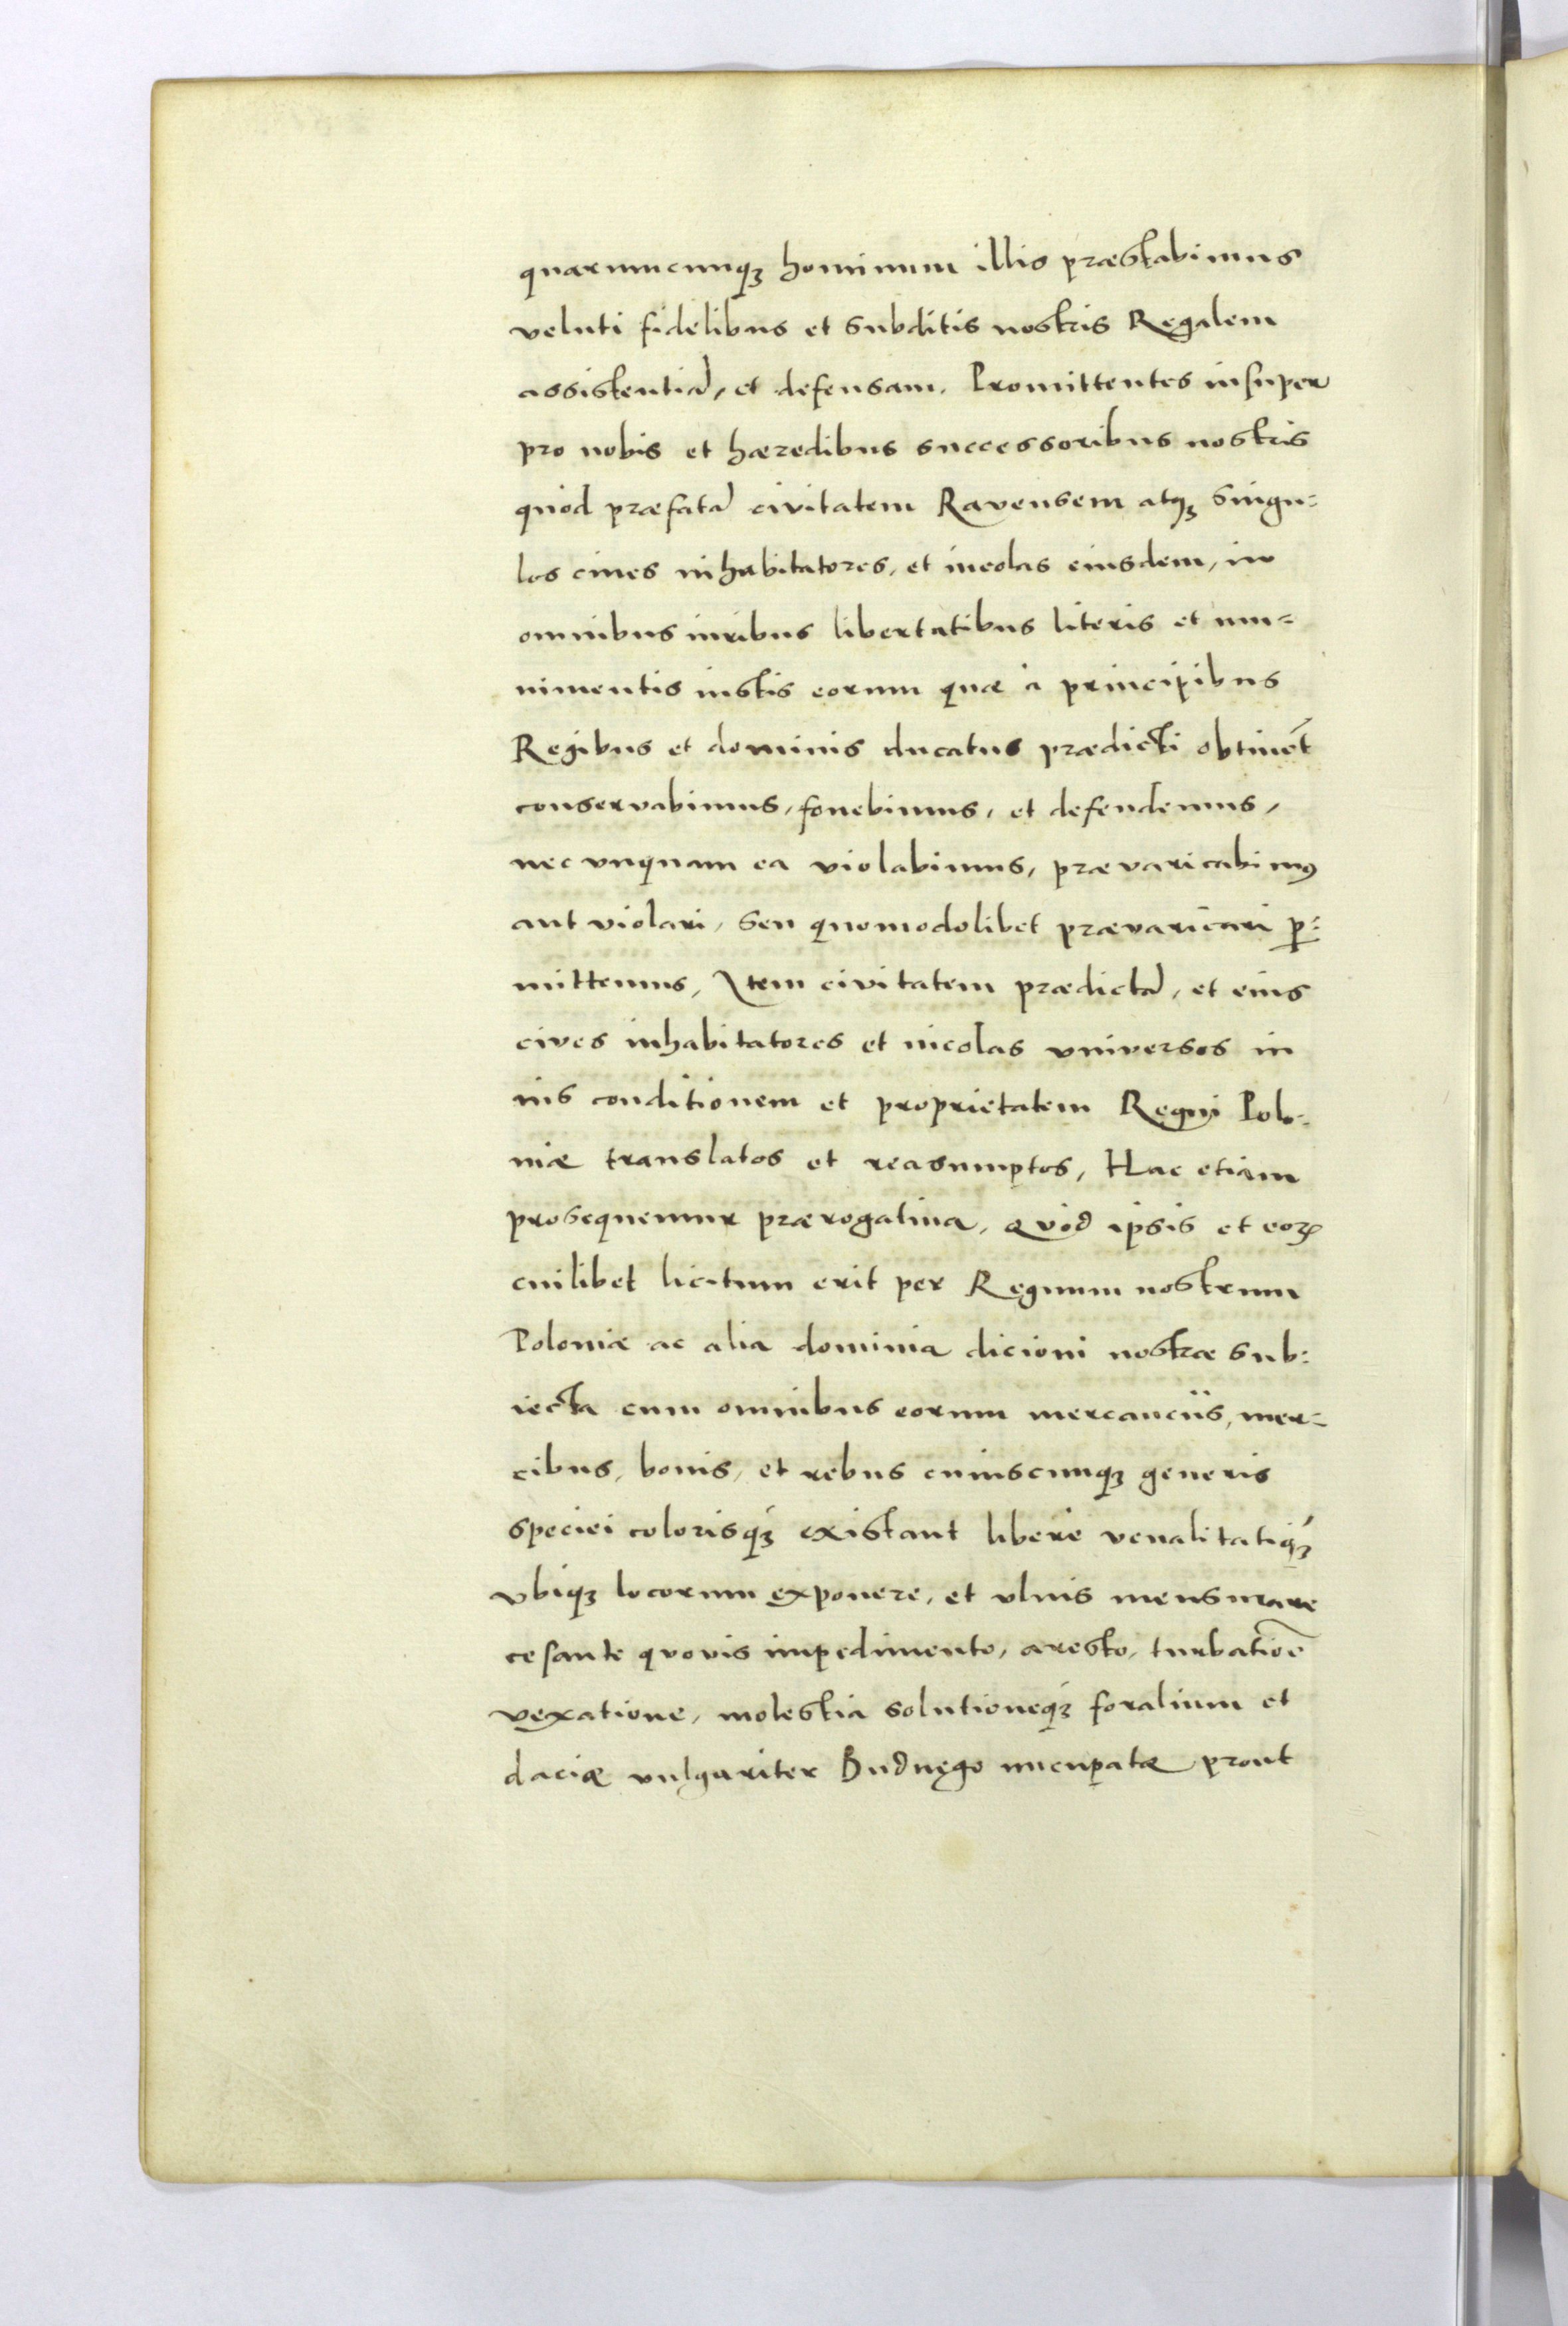 quarumcunqꝫ hominum illis præstabimus
veluti fidelibus et subditis nostris Regalem
assistentiã, et defensam. Promittentes insuper
pro nobis et hæredibus successoribus nostris
quod præfatã civitatem Ravensem atqꝫ singu=
los ciues inhabitatores, et incolas eiusdem, in
omnibus iuribus libertatibus literis et mu=
nimentis iustis eorum quæ à principibus
Regibus et dominis ducatus prædicti obtinēt
conservabimus, fouebimus, et defendemus,
nec vnquam ea violabimus, prævaricabimꝰ
aut violari, seu quomodolibet prævaricari ꝑ=
mittemus, Item civitatem prædictã, et eius
cives inhabitatores et incolas vniversos in
ius conditionem et proprietatem Regni Polo=
niæ translatos et reasumptos, Hac etiam
prosequemur prærogatiua, Quod ipsis et eoꝝ
cuilibet licitum erit per Regnum nostrum
Poloniæ ac alia dominia dicioni nostræ sub=
iecta cum omnibus eorum mercanciis, mer=
cibus, bonis, et rebus cuiuscunqꝫ generis
speciei colorisqꝫ́ existant liberè venalitatiqꝫ́
vbiqꝫ locorum exponere, et vlnis mensurare
cesante quovis impedimento, aresto, turbatiōe
vexatione, molestia solutioneqꝫ́ foralium et
daciæ vulgariter Budnego nucupatæ prout